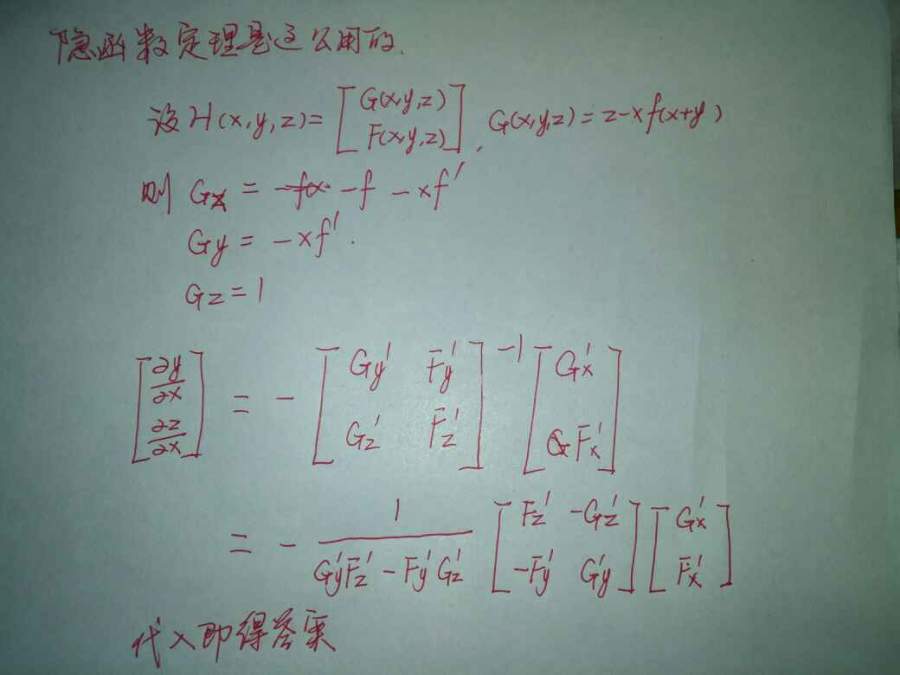 隐函数定理是这么用的.
设 H(x,y,z) = [ G(x,y,z) ; F(x,y,z) ], G(x,y,z) = z - xf(x+y)
则 Gx = -f - xf'
Gy = -xf'.
Gz = 1
[ ∂y/∂x ; ∂z/∂x ] = - [ Gy' Fy' ; Gz' Fz' ]⁻¹ [ Gx' ; Fx' ]
= - 1/(Gy'Fz' - Fy'Gz') [ Fz' -Gz' ; -Fy' Gy' ] [ Gx' ; Fx' ]
代入即得答案